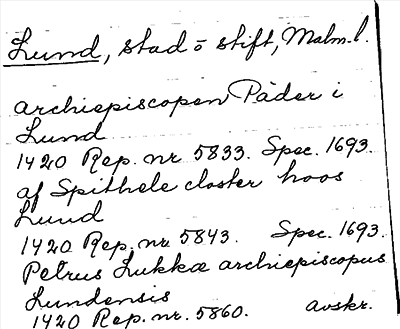 Lund, stad o stift, Malm.l.
archiepiscopen Pæder i
Lund
1420 Rep. nr 5833. Spec. 1693.
af Spithele closter hoos
Lund
1420 Rep. nr 5843. Spec. 1693.
Petrus Lukkæ archiepiscopus
Lundensis
1420 Rep. nr. 5860. avskr.